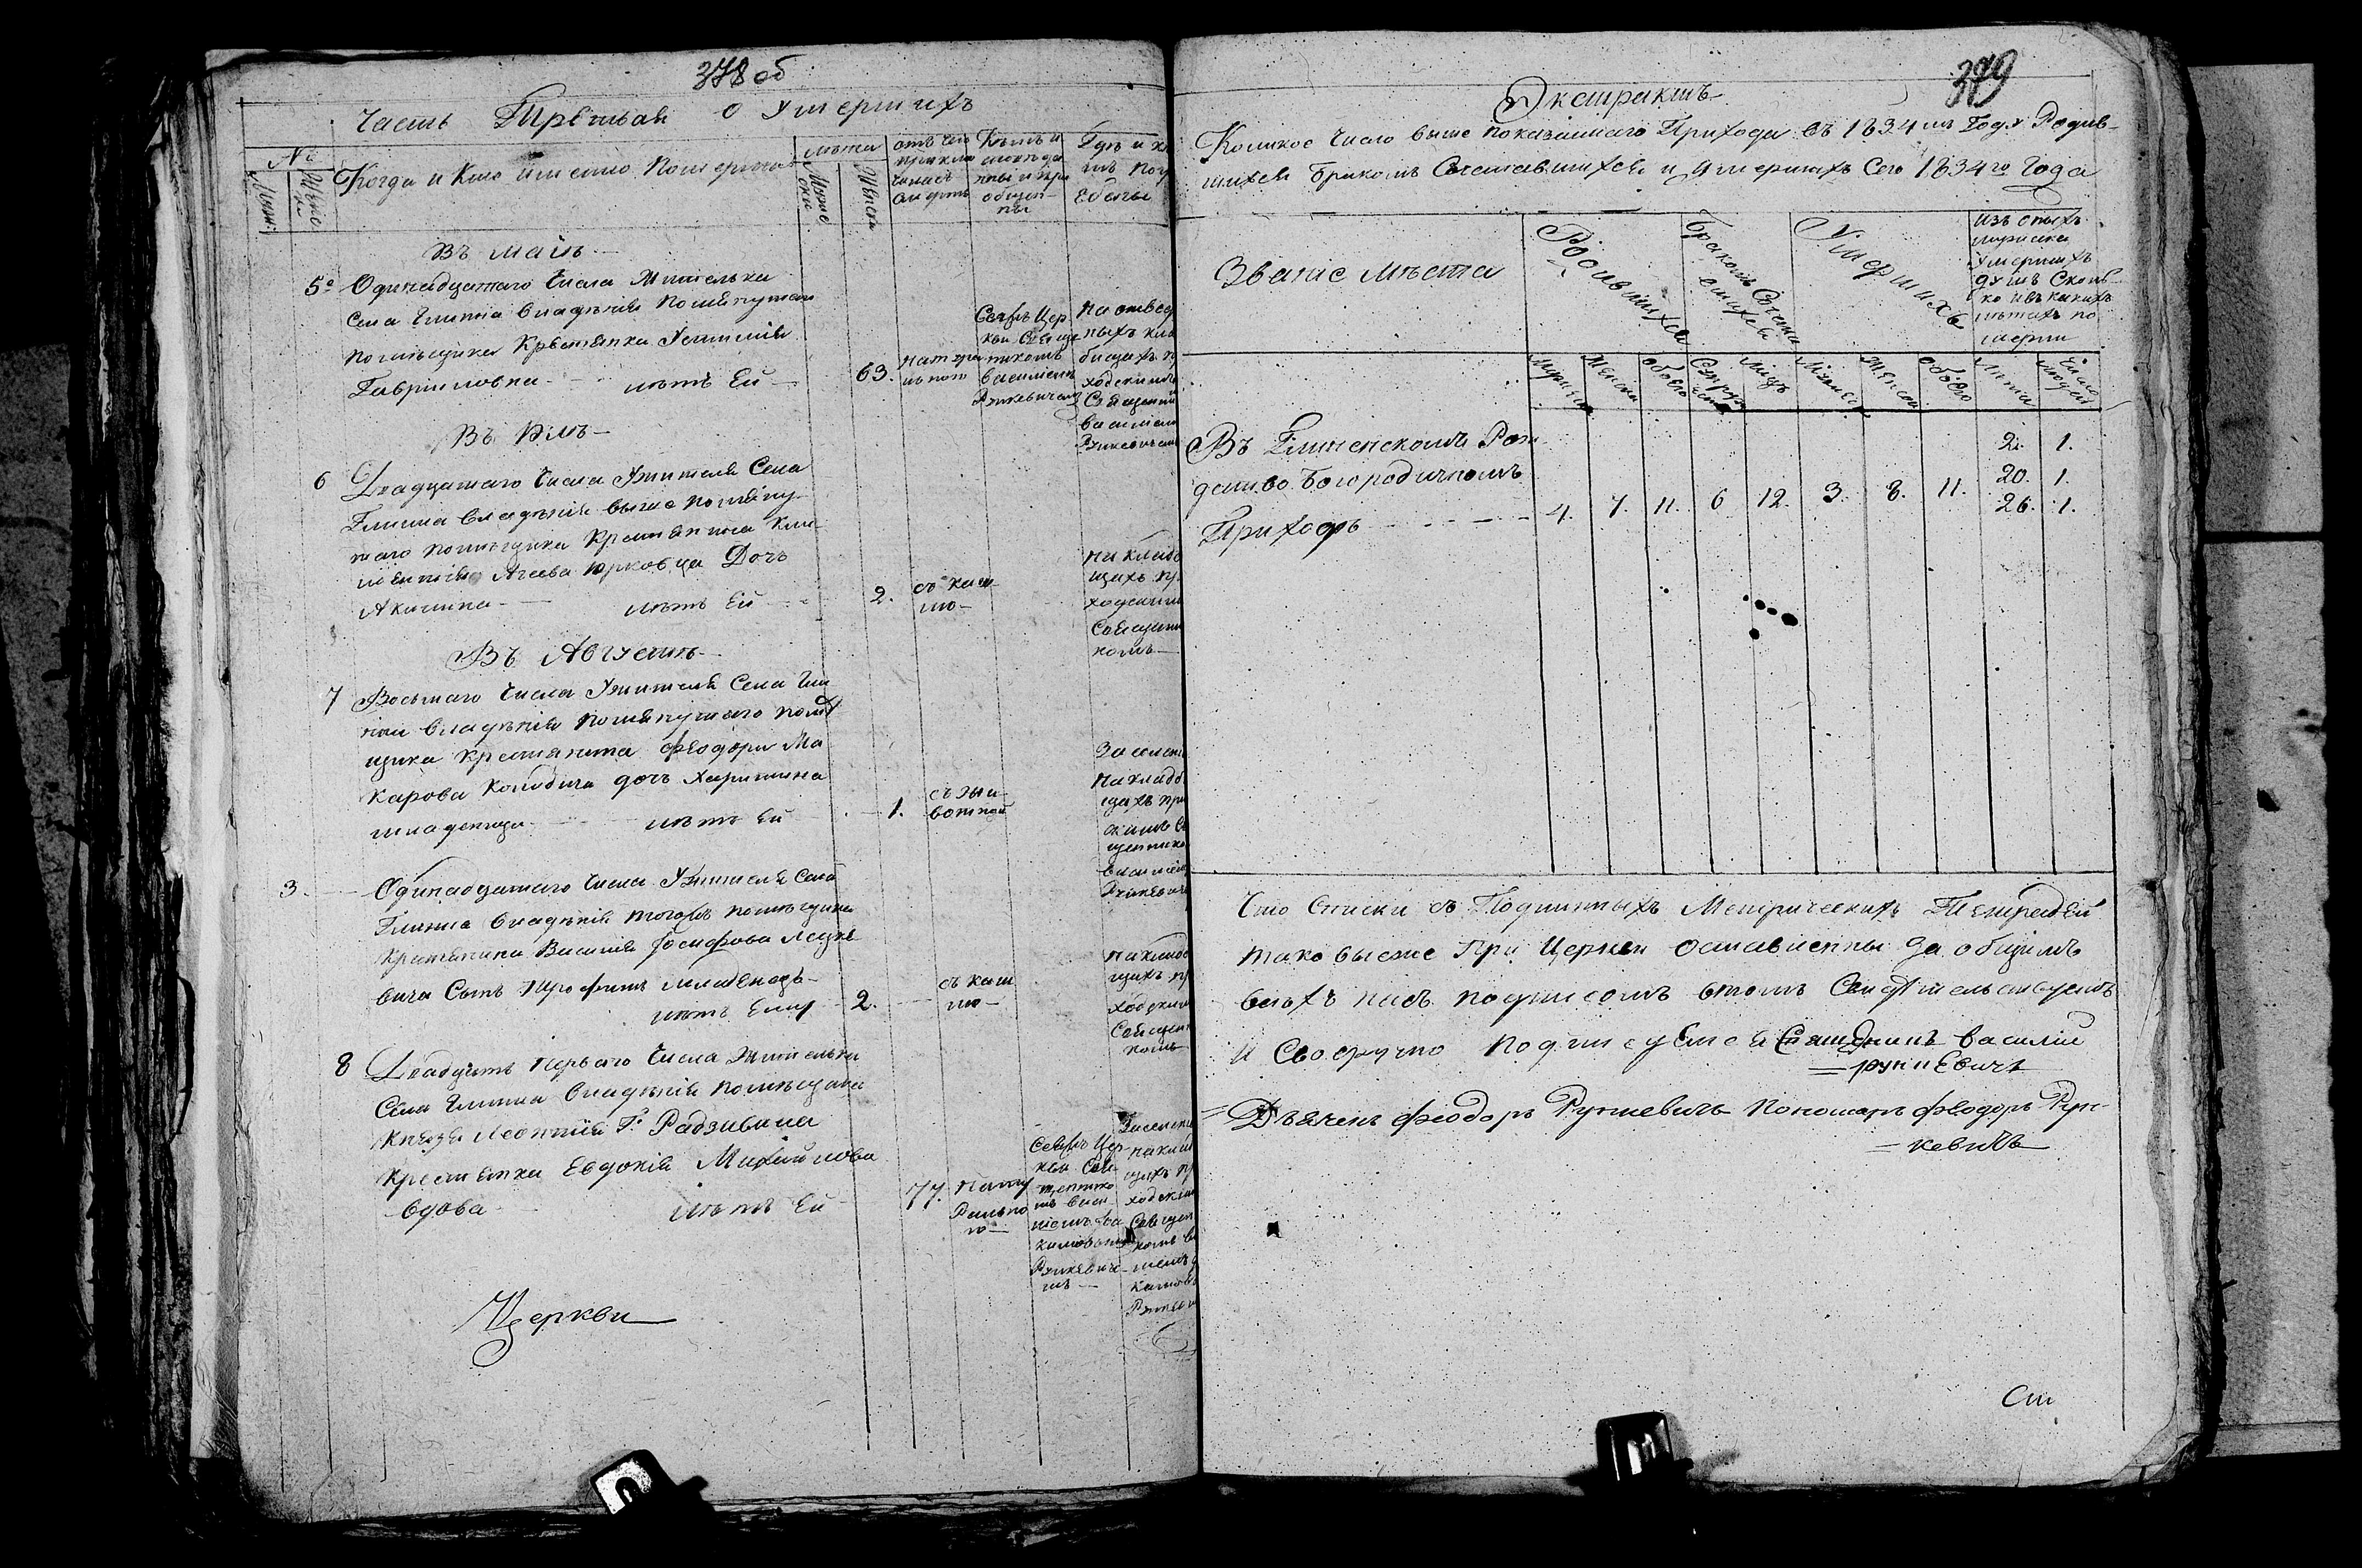 378 об
Часть Третьая о Умершихъ
№
Муж:
Женс
Когда и Кто имянно Померъ
лѣта
Муже
ски
Женски
отъ чего
приклю
чилась
смерть
Кѣмъ и
исповѣда
ны и прі
общен-
ны
Гдѣ и
Погре
бены
Въ Маіѣ
5 Одинадцатаго Числа Жителька
Села Глинна Владѣнія Помянутаго
помѣщика Крестянка
Гавриловна лѣтъ Ей 63.
натура
льной
Сеяжъ Цер
кви Свяще
никомъ
Василіем
Рункевичемъ
На отвед
ныхъ кла
бищахъ
ходскимъ
Священни
Василіем
Рункевичем
Въ
6 Двадцатаго Числа Жителя Села
Глинна Владѣнія выше помяну
таго помѣщика Крестянина Кли
ментія Агеева Юрковца Дочь
Акилина лѣтъ Ей 2.
съ каш
лю
на кладб
ищахъ пр
ходскимъ
Священни
комъ
Въ Августѣ
7 Восьмаго Числа Жителя Села Гли
нни Владѣнія помянутаго помѣ
щика Крестянина Феодора Ма
карова дочь Харитина
младенца лѣтъ Ей 1.
съ жи
вотной
За селом
на кладб
ищахъ при
скимъ Св
щеннико
Василіем
Рункевиче
3. Одинадцатаго Числа Жителя Села
Глинна Владѣнія тогожъ помѣщика
Крестянина Василія Іосифова Мацке
вича Сынъ Трофимъ младенецъ
лѣтъ Ему 2.
съ каш
лю
на кладб
ищахъ пр
ходским
Священ
комъ
8 Двадцать перваго Числа Жителька
Села Глинна Владѣнія помѣщика
Князя Леонтія Г. Радзивила
Крестянка Евдокія Михайлова
вдова лѣтъ Ей 77.
Нату
рально
ю
Сеяжъ Цер
кви Свя
щеннико
мъ Васи
ліемъ
Рункевиче
мъ
За селом
на клад
ищахъ пр
ходским
Священ
комъ Ва
ліемъ
Рункев
Церкви
379
Экстрактъ
Коликое Число выше показаннаго Прихода въ 1834мъ Году Родив-
шихся Бракомъ Сочетавшихся и Умершихъ Сего 1834го Года
Званіе Мѣста
Родившихся
Бракомъ Сочета
вшихся
Умершихъ
Изъ оныхъ
мужеска
умершихъ
душъ Сколь-
ко и въ какихъ
лѣтахъ по
мерли
Мужеска
Женска
Обоего
Супруж
Лицъ
Мужеска
Женска
Обоего
Лѣта
Число
людей
Въ Глиненскомъ Рож
дество Богородичномъ
Приходѣ 4. 7. 11. 6 12. 3. 8. 11.
2. 1.
20. 1.
26. 1.
Что Списки съ Подлинныхъ Метрическихъ Тетрадей
таковыеже При Церкви оставленны За общимъ
всѣхъ насъ подписомъ втомъ Свидѣтельствуемъ
и Своеручно подписуемся Священникъ Василій
Рункевичъ
Дьячекъ Феодоръ Рункевичъ Пономаръ Феодоръ Рун-
кевичъ
Ст